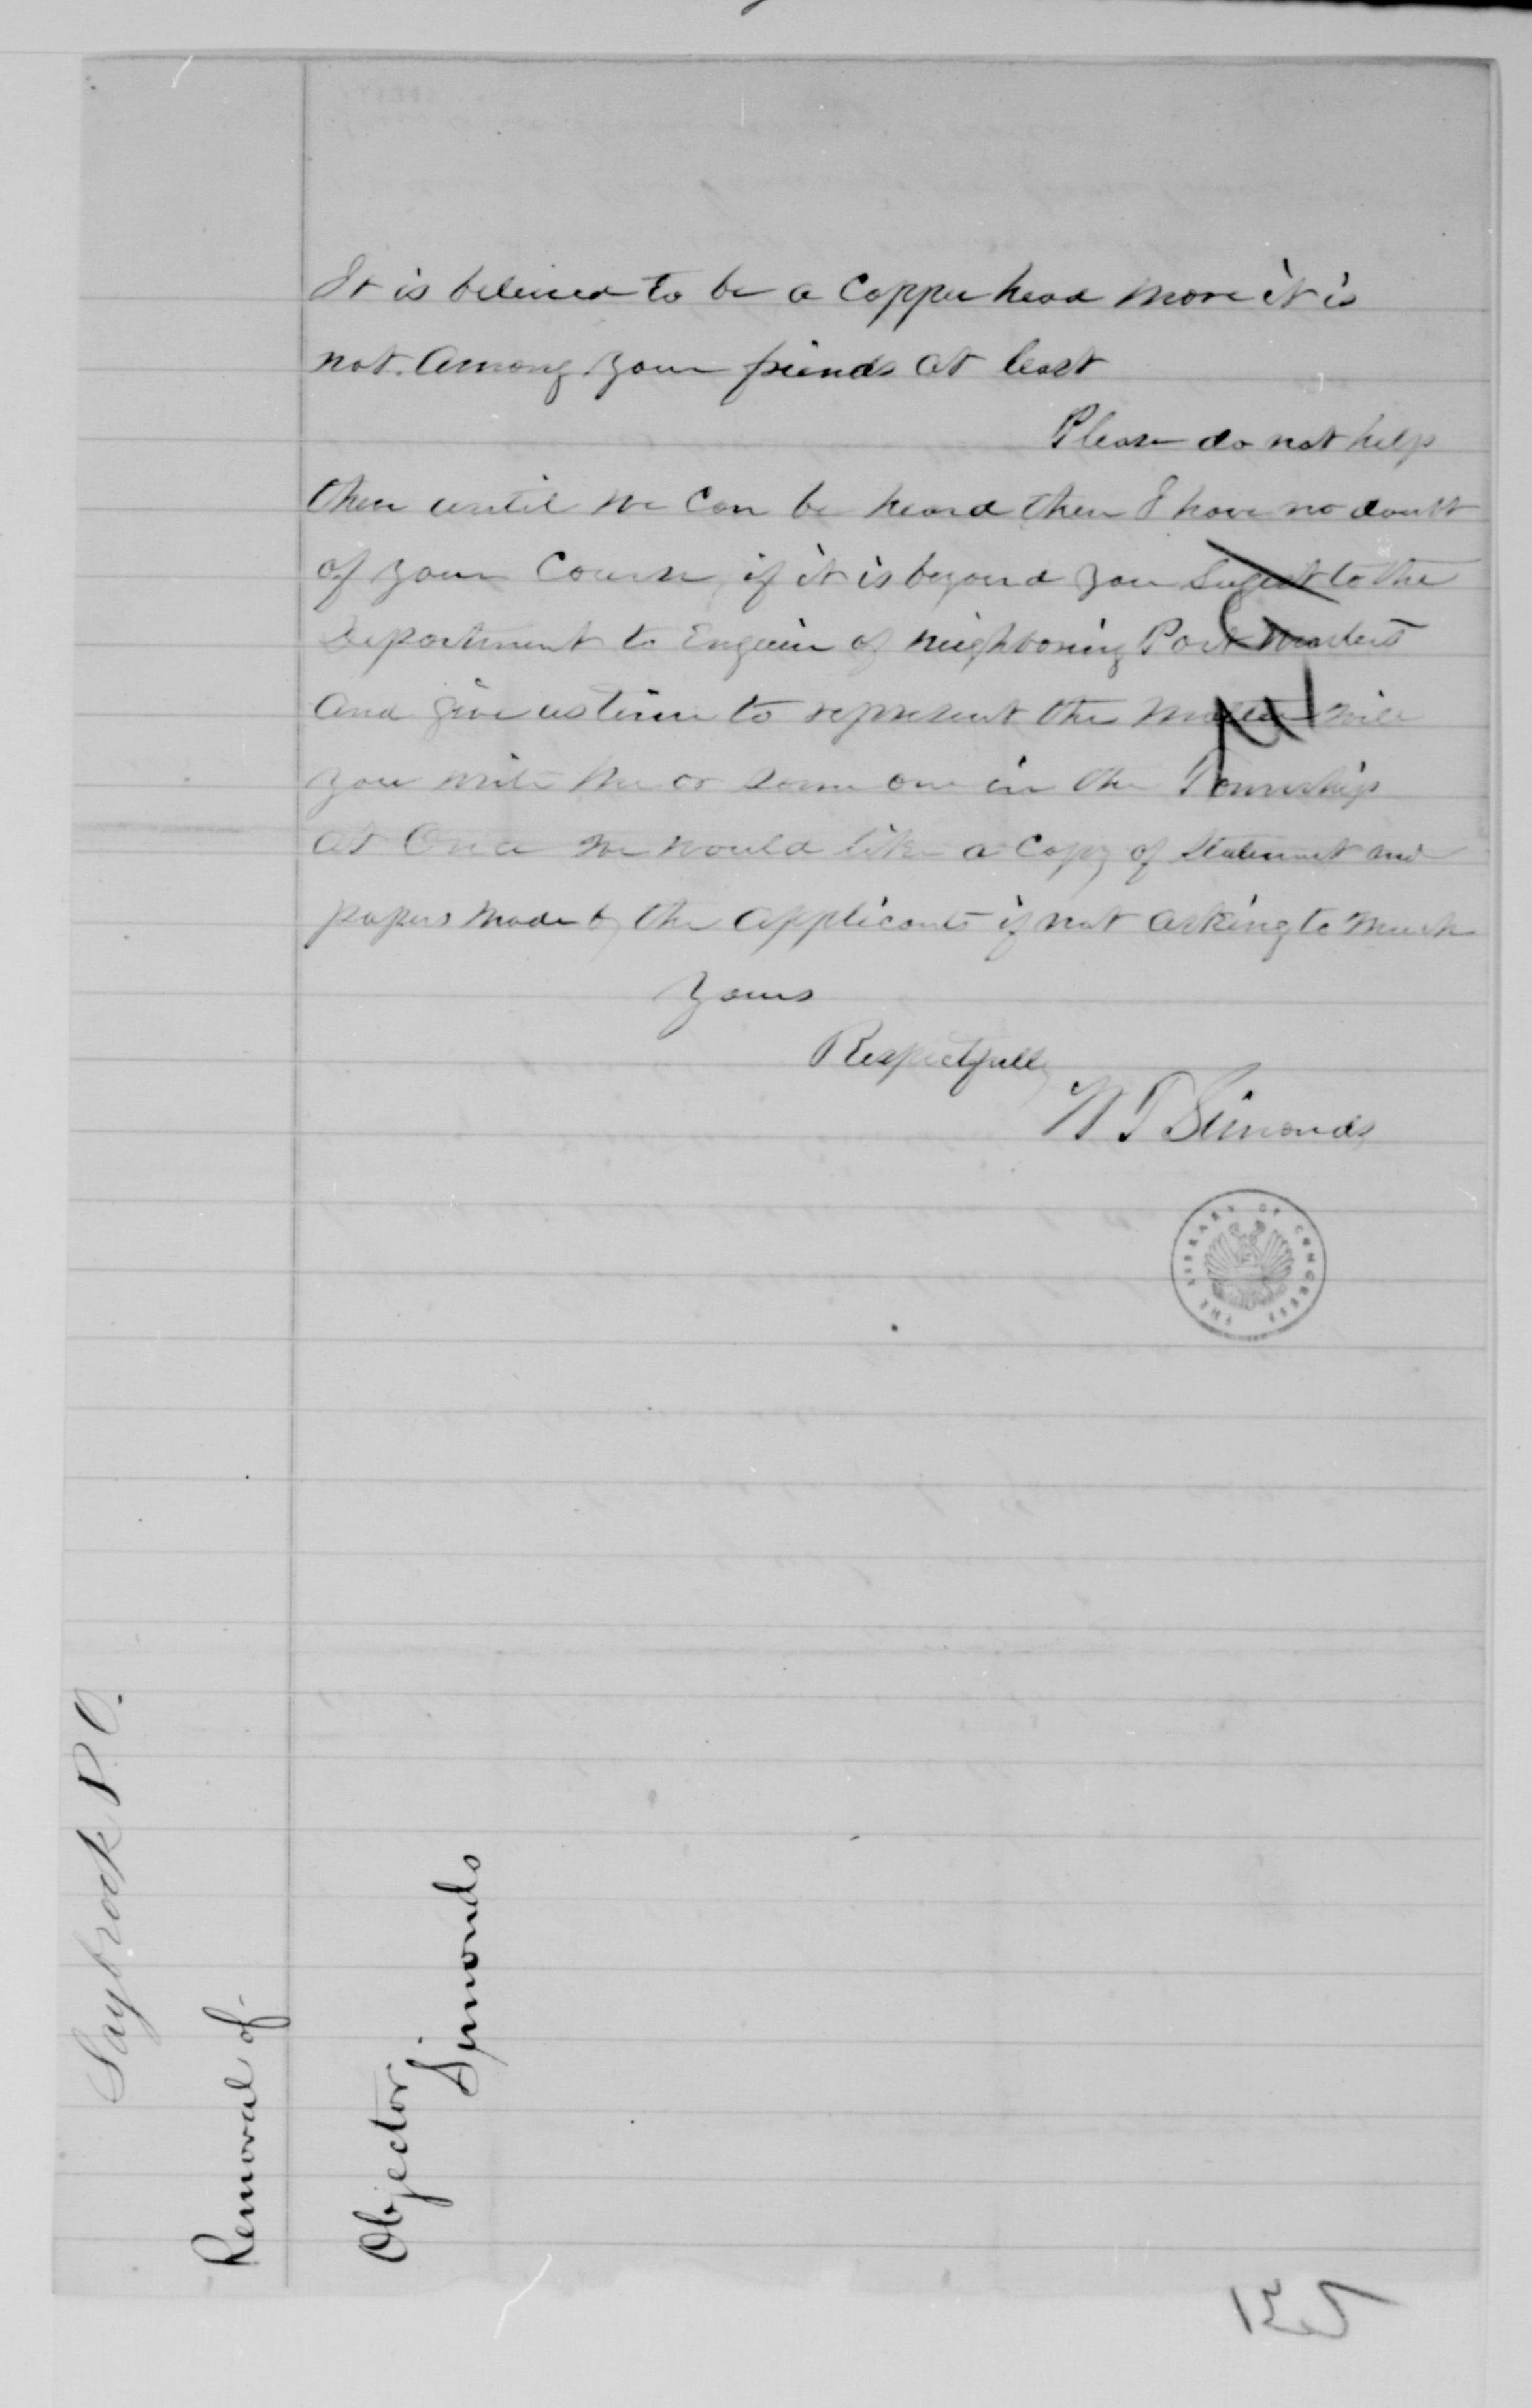 It is beleived to be a Copper head more it is
not among your friends at least
Please do not help
them until we can be heard then I have no doubt
of your Course if it is beyond you sugest to the
Department to Enquire of neighboring Post Masters
and give us time to represent the matter will
you write me or some one in the Township
at Once we would like a Copy of Statement and
papers made by the applicants if not asking to much
Yours
Respectfully
W T Simonds
THE LIBRARY OF CONGRESS
Saybrook P.O.
Removal of.
Objector
Simonds